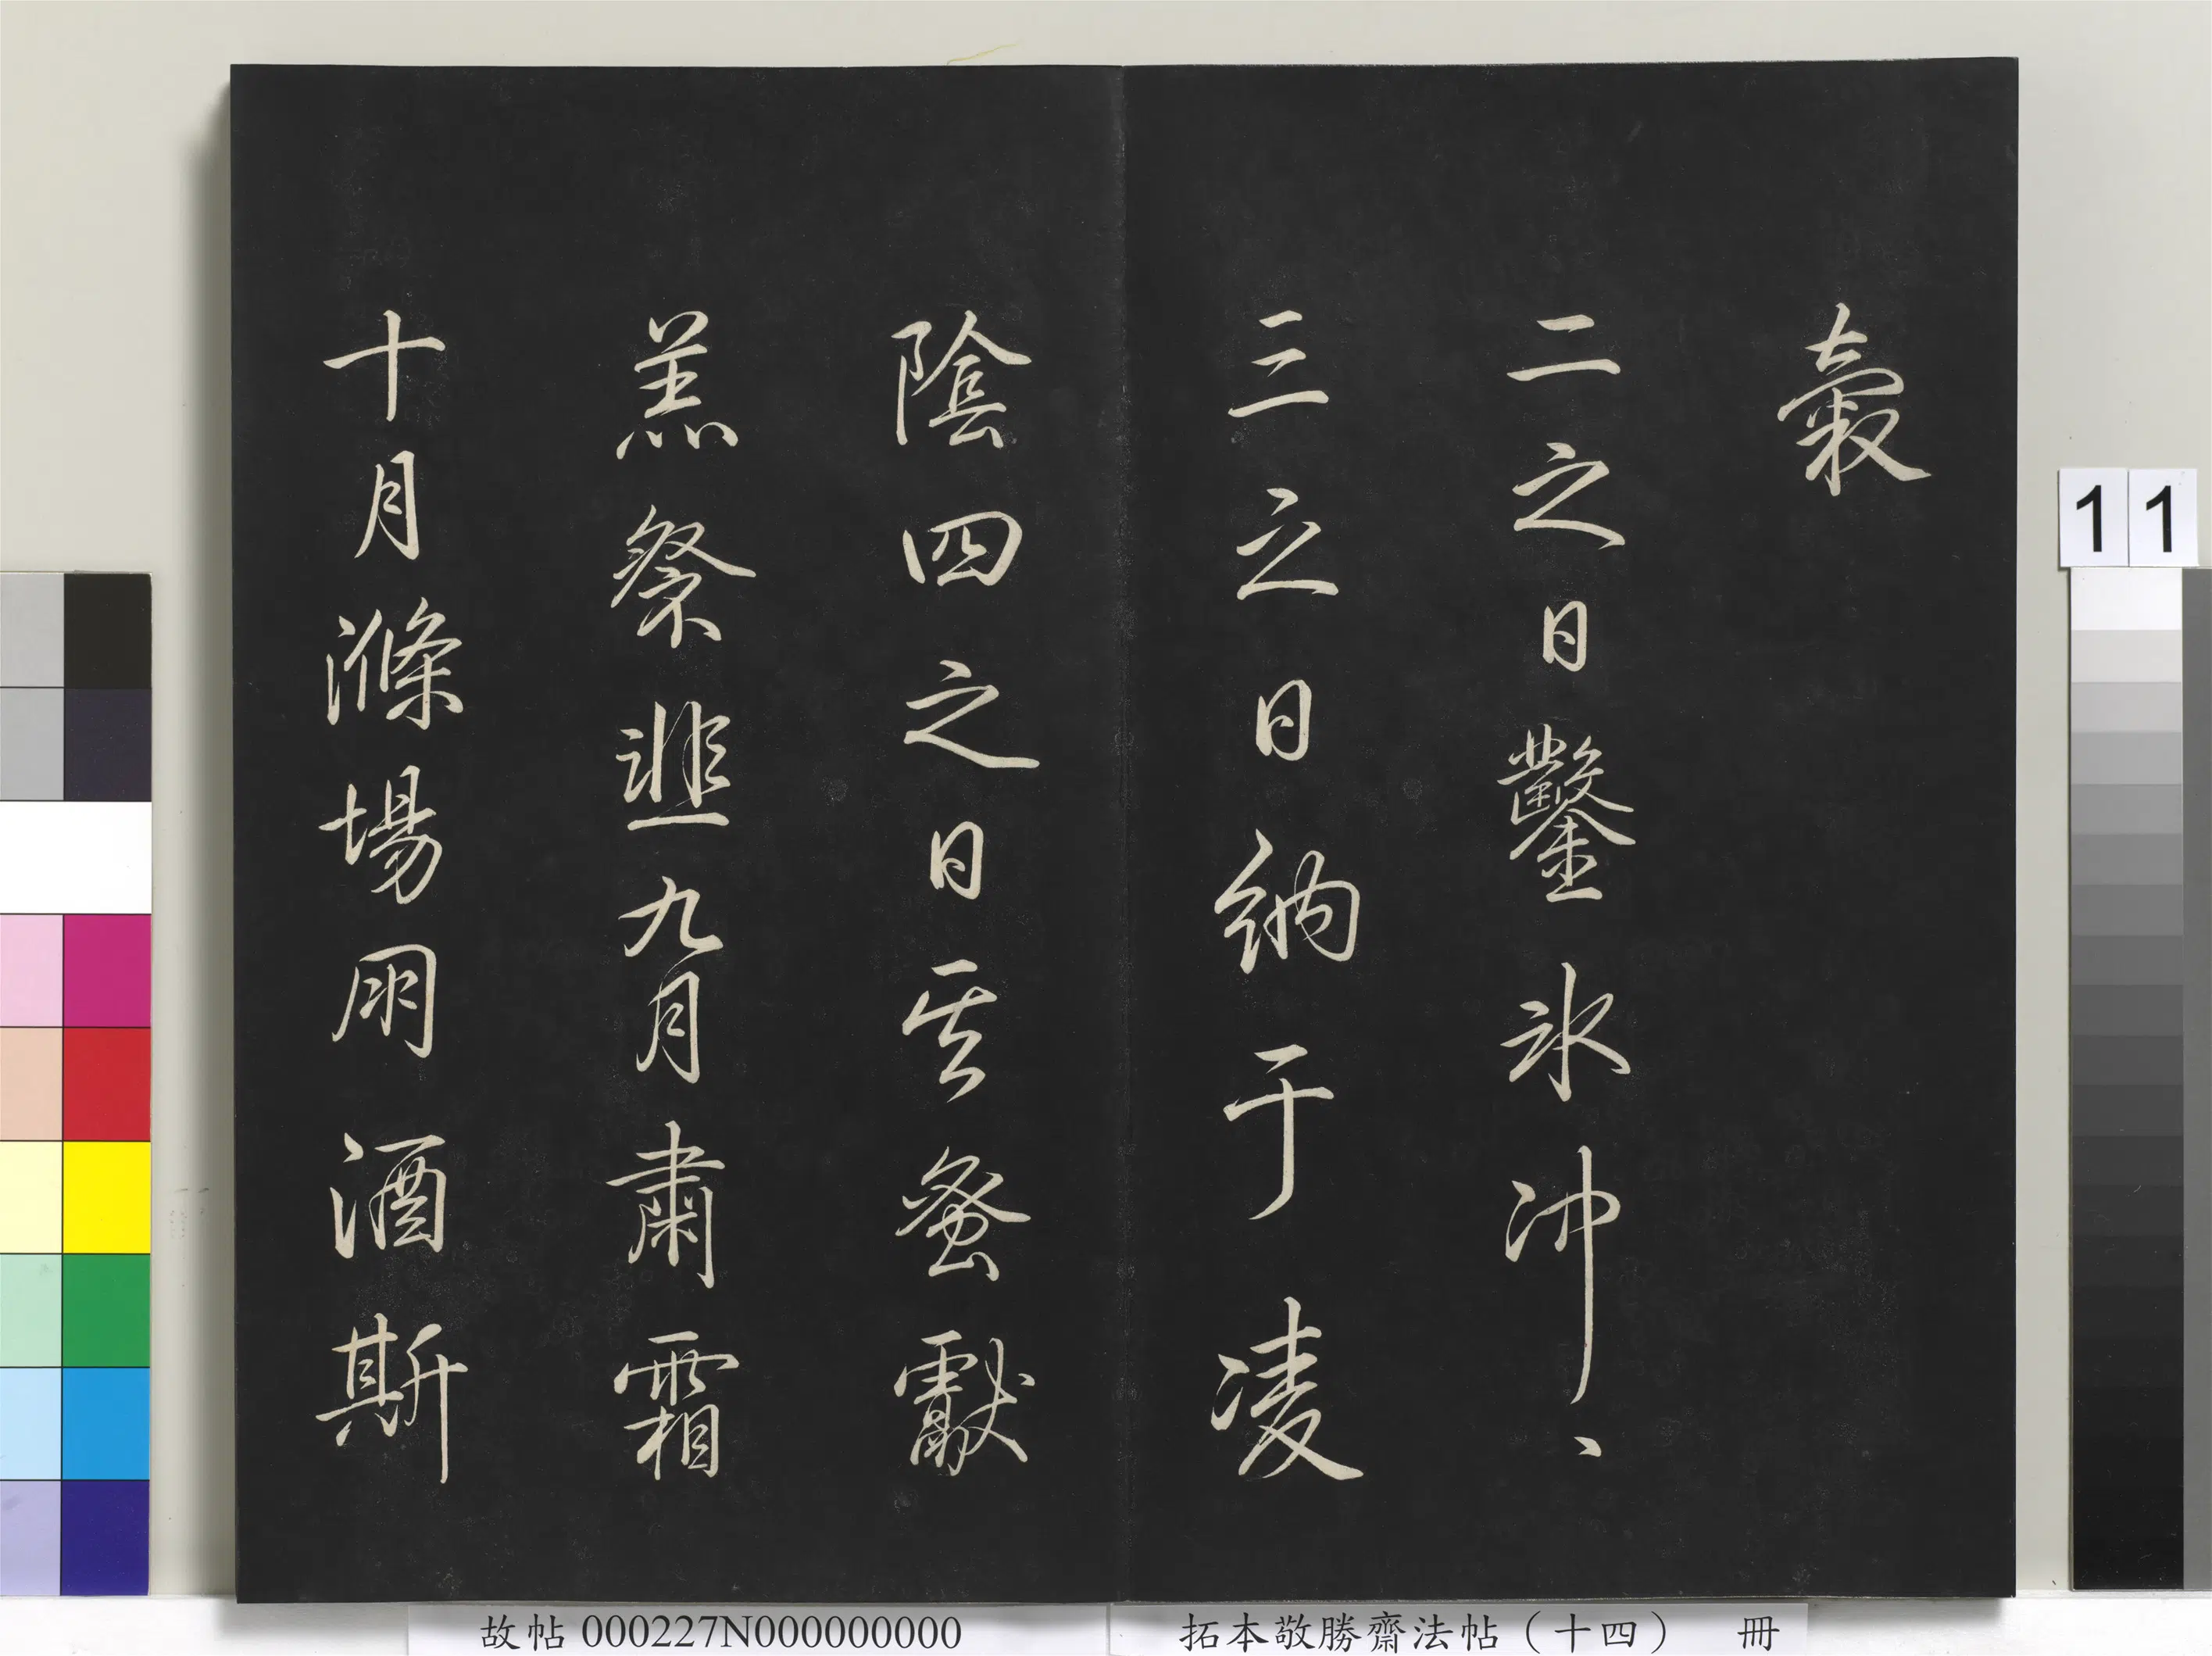 穀
二之日鑿氷沖〻
三之日納于凌
陰四之日其蚤獻
羔祭韭九月肅霜
十月滌場朋酒斯
11
拓本敬勝齋法帖（十四） 冊
故帖 000227N000000000